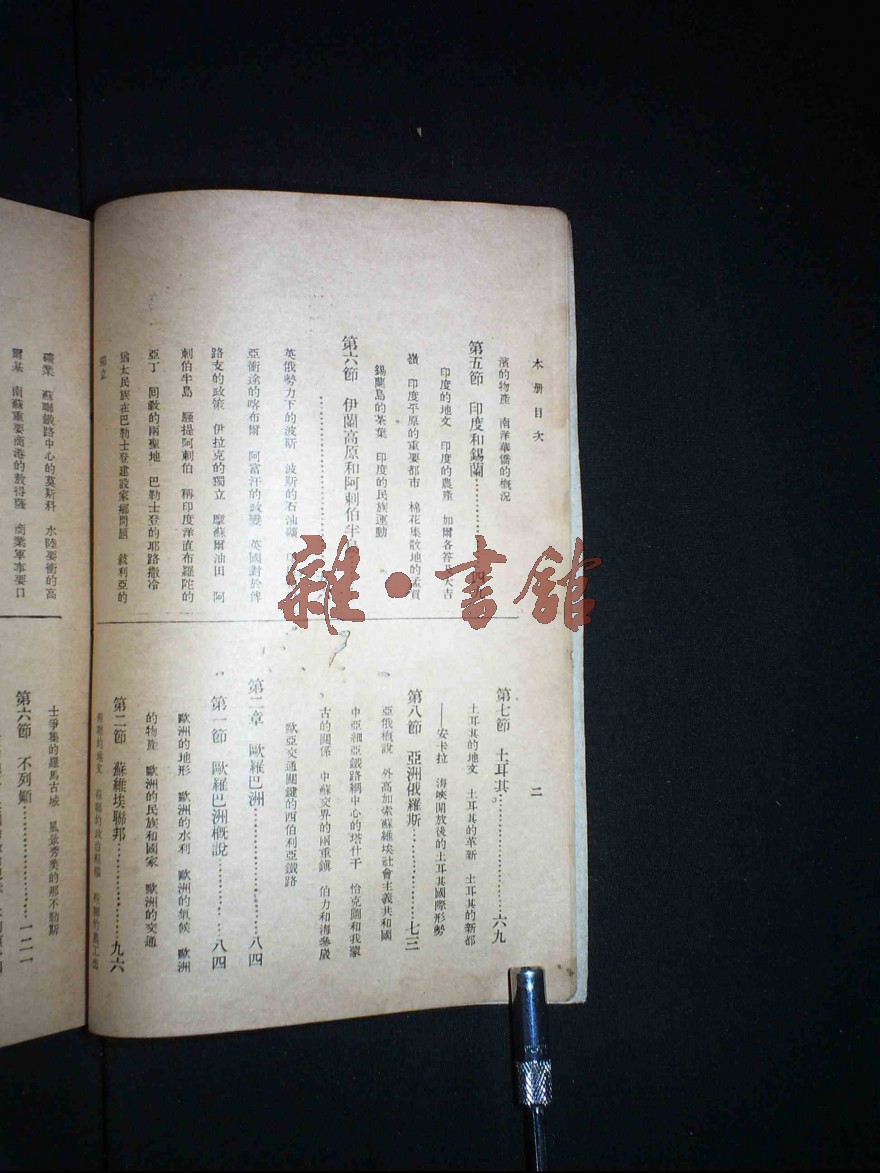 本册目次
濱的物產　南洋華僑的概況
第五節　印度和錫蘭………四九
印度的地文　印度的農產　加爾各答　大吉
嶺　印度平原的重要都市　棉花集散地的孟買
錫蘭島的茶葉　印度的民族運動
第六節　伊蘭高原和阿剌伯半島
英俄勢力下的波斯　波斯的石油礦
亞衝途的喀布爾　阿富汗的政變　英國對於俾
路支的政策　伊拉克的獨立　摩蘇爾油田　阿
剌伯半島　騷提阿剌伯　稱印度洋直布羅陀的
亞丁　回教的兩聖地　巴勒士登的耶路撒冷
猶太民族在巴勒士登建設家鄉問題　敍利亞的
獨立
二
第七節　土耳其………六九
土耳其的地文　土耳其的革新　土耳其的新都
——安卡拉　海峽開放後的土耳其國際形勢
第八節　亞洲俄羅斯………七三
亞俄概說　外高加索蘇維埃社會主義共和國
中亞細亞鐵路網中心的塔什干　恰克圖和我蒙
古的關係　中蘇交界的兩重鎮　伯力和海參崴
歐亞交通關鍵的西伯利亞鐵路
第二章　歐羅巴洲………八四
第一節　歐羅巴洲概說………八四
歐洲的地形　歐洲的水利　歐洲的氣候　歐洲
的物產　歐洲的民族和國家　歐洲的交通
第二節　蘇維埃聯邦………九六
蘇聯的地文　蘇聯的政治組織　蘇聯的農工
礦業　蘇聯鐵路中心的莫斯科　水陸要衝的高
爾基　南蘇重要商港的敖得薩　商業軍事要口
士爭集的羅馬古城　風景秀美的那不勒斯
第六節　不列顛………一二一
雜·書舘